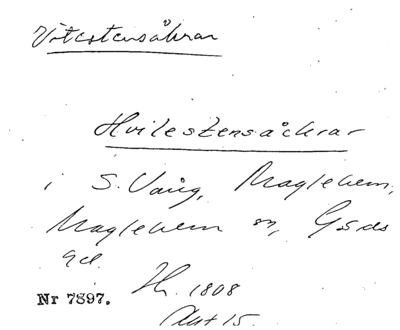 Vitestensåkrar
Hvilestensåckrar
i S. Vång, Maglehem,
Maglehem sn, Gärds
hd.
Nr 7897. H. 1808
Akt 15